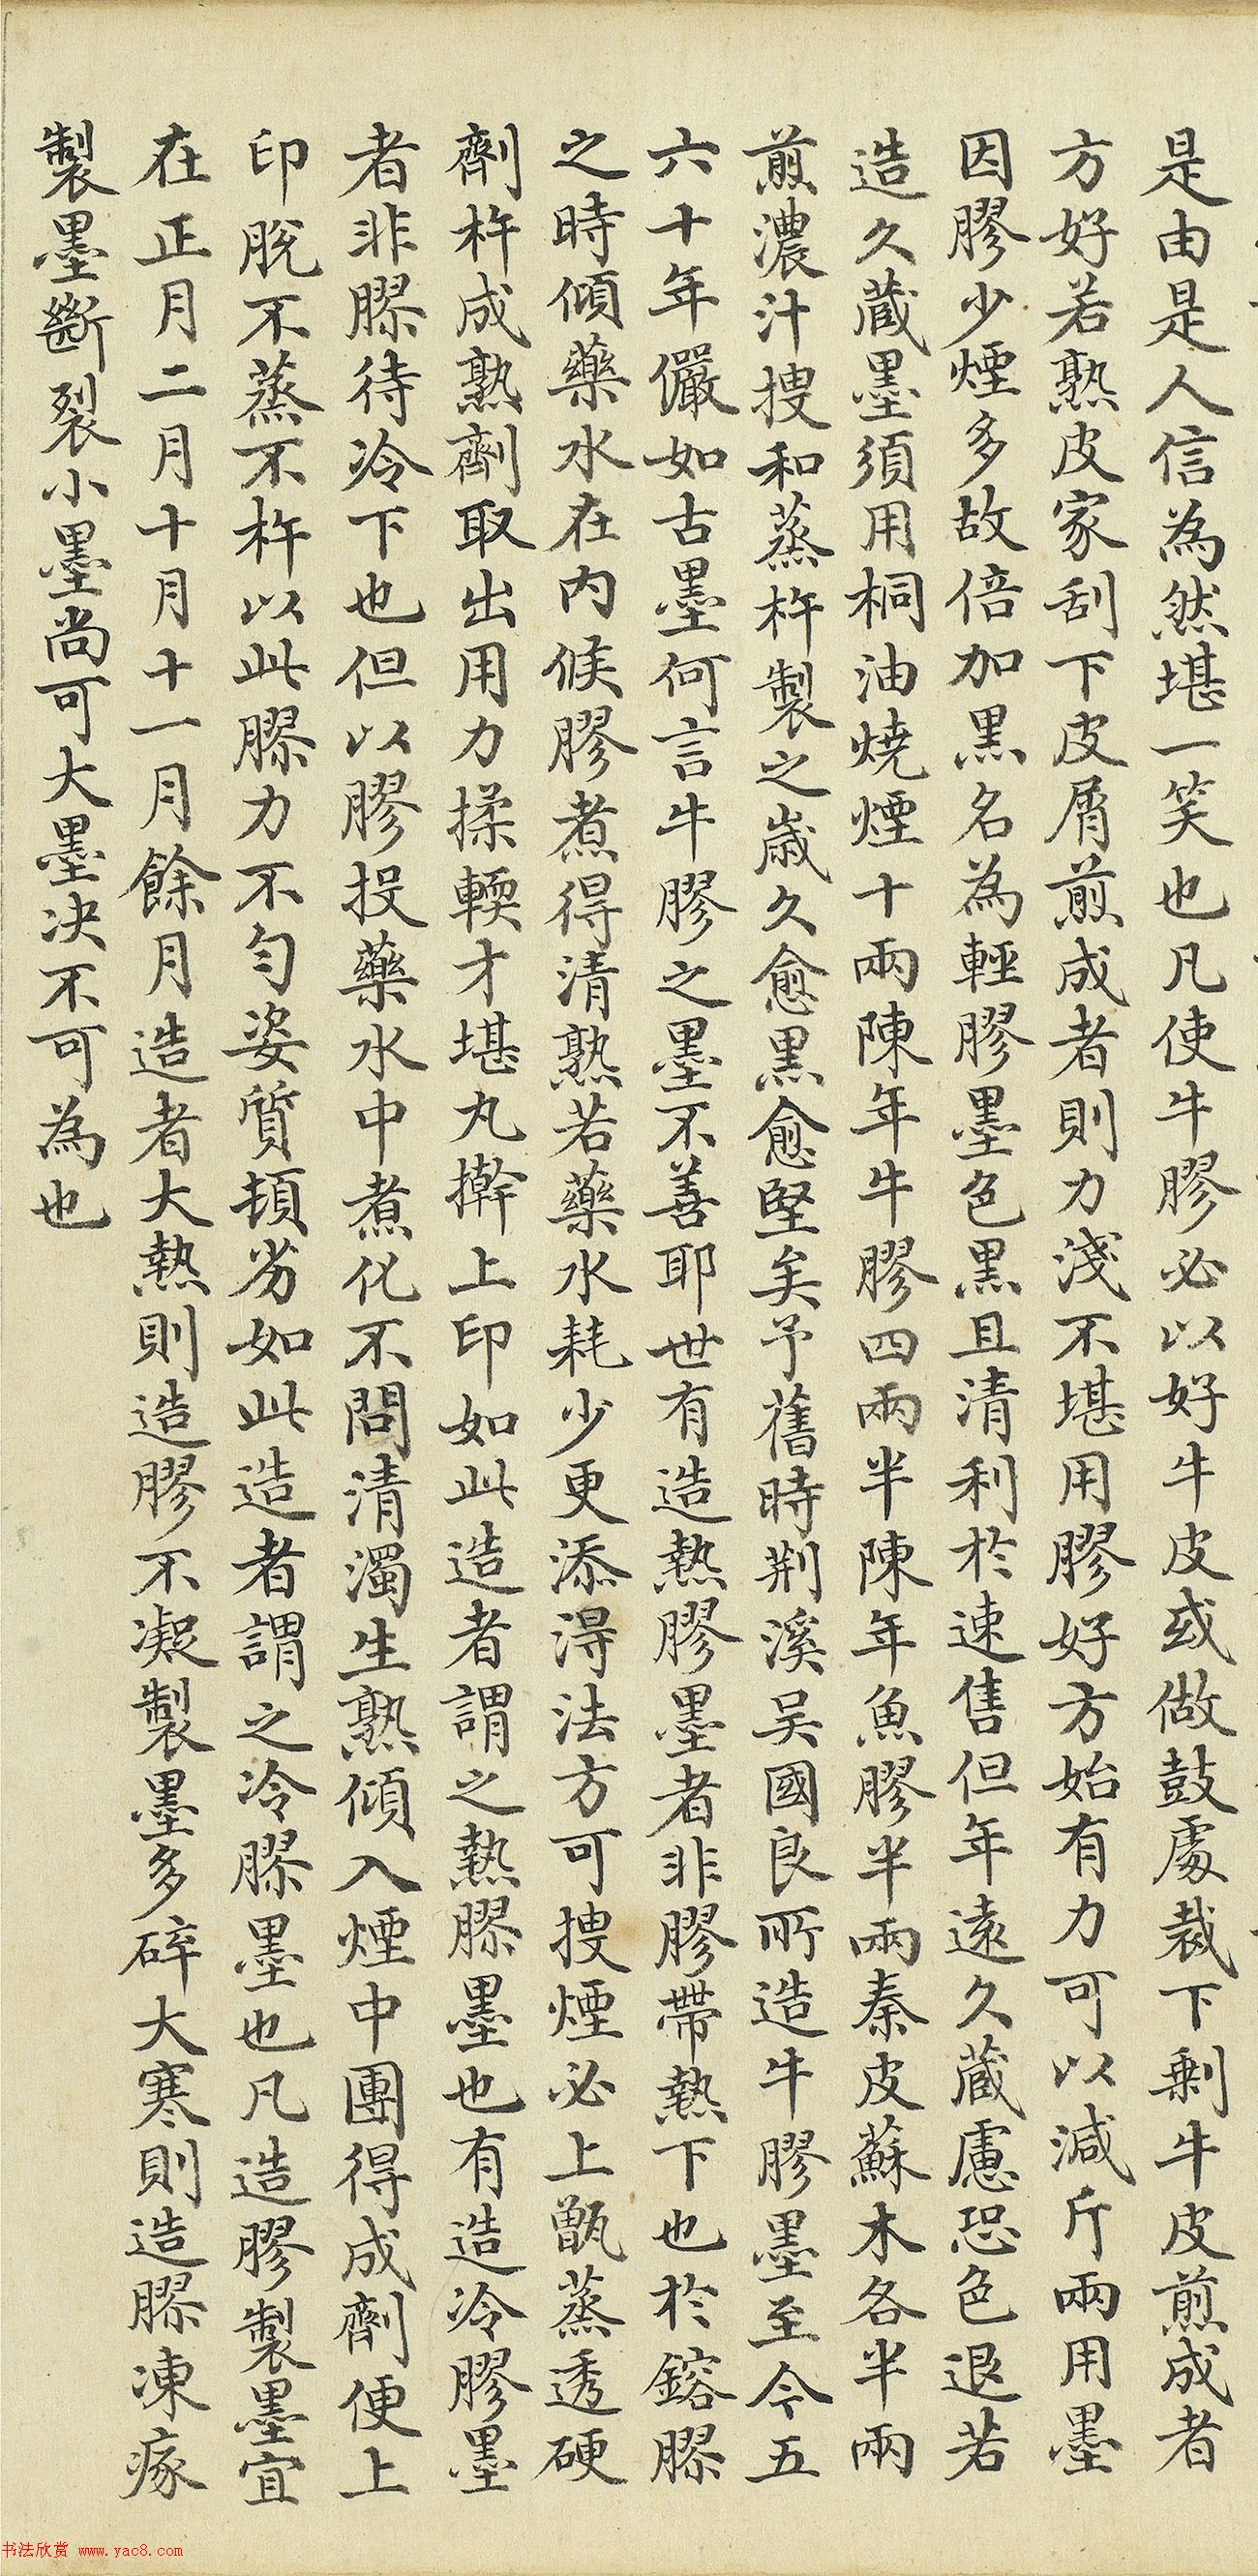 是由是人信為然堪一笑也凡使牛膠必以好牛皮或做鼓處裁下剩牛皮煎成者
方好若熟皮家刮下皮屑煎成者則力淺不堪用膠好方始有力可以減斤兩用墨
因膠少煙多故倍加黑名為輕膠墨色黑且清利於速售但年遠久蔵慮恐色退若
造久蔵墨須用桐油燒煙十兩陳年牛膠四兩半陳年魚膠半兩秦皮蘇木各半兩
煎濃汁搜和蒸杵製之歲久愈黑愈堅矣予舊時荆溪吴國良所造牛膠墨至今五
六十年儼如古墨何言牛膠之墨不善耶世有造熱膠墨者非膠帶熱下也於鎔膠
之時傾藥水在内候膠煮得清熟若藥水耗少更添得法方可搜煙必上甑蒸透硬
劑杵成熟劑取出用力揉輭才堪丸擀上印如此造者謂之熱膠墨也有造冷膠墨
者非膠待冷下也但以膠投藥水中煮化不問清濁生熟傾入煙中團得成劑便上
印脫不蒸不杵以此膠力不勻姿質頓劣如此造者謂之冷膠墨也凡造膠製墨宜
在正月二月十月十一月餘月造者大熱則造膠不凝製墨多碎大寒則造膠凍瘃
製墨斷裂小墨尚可大墨決不可為也
书法欣赏 www.yac8.com